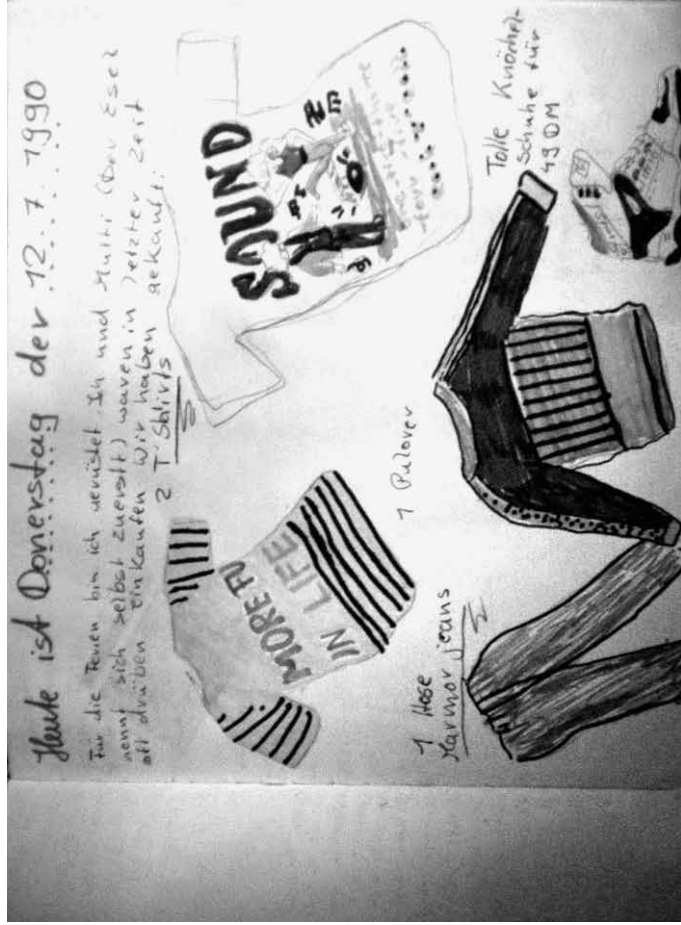 Heute ist Donerstag der 12.7.1990
Für die Ferien bin ich gerüstet. Ich und Mutti (Der Esel
nennt sich selbst zuerst) waren in letzter Zeit
oft drüben einkaufen Wir haben gekauft:
2 T-Shirts
MORE FU
IN LIFE
SOUND
1 Pulover
Tolle Knöchel-
schuhe für
49 DM
1 Hose
Marmorjeans